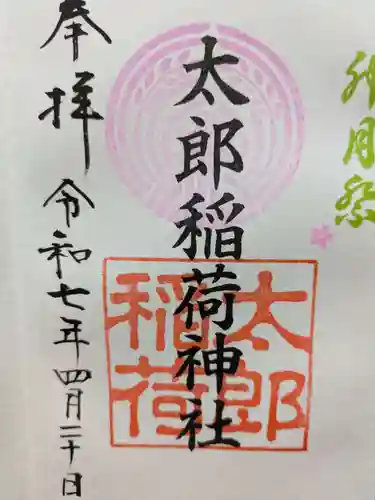 卯月祭
太郎稲荷神社
太郎
稲荷
奉拝
令和七年四月二十日